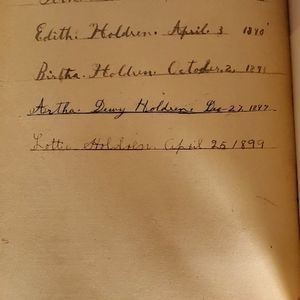 Edith. Holdren. April. 3 1890
Birtha. Holdren. October. 2, 1891
Artha. Dewy Holdren. Dec 27. 1897
Lottie Holdren. April 25 1899